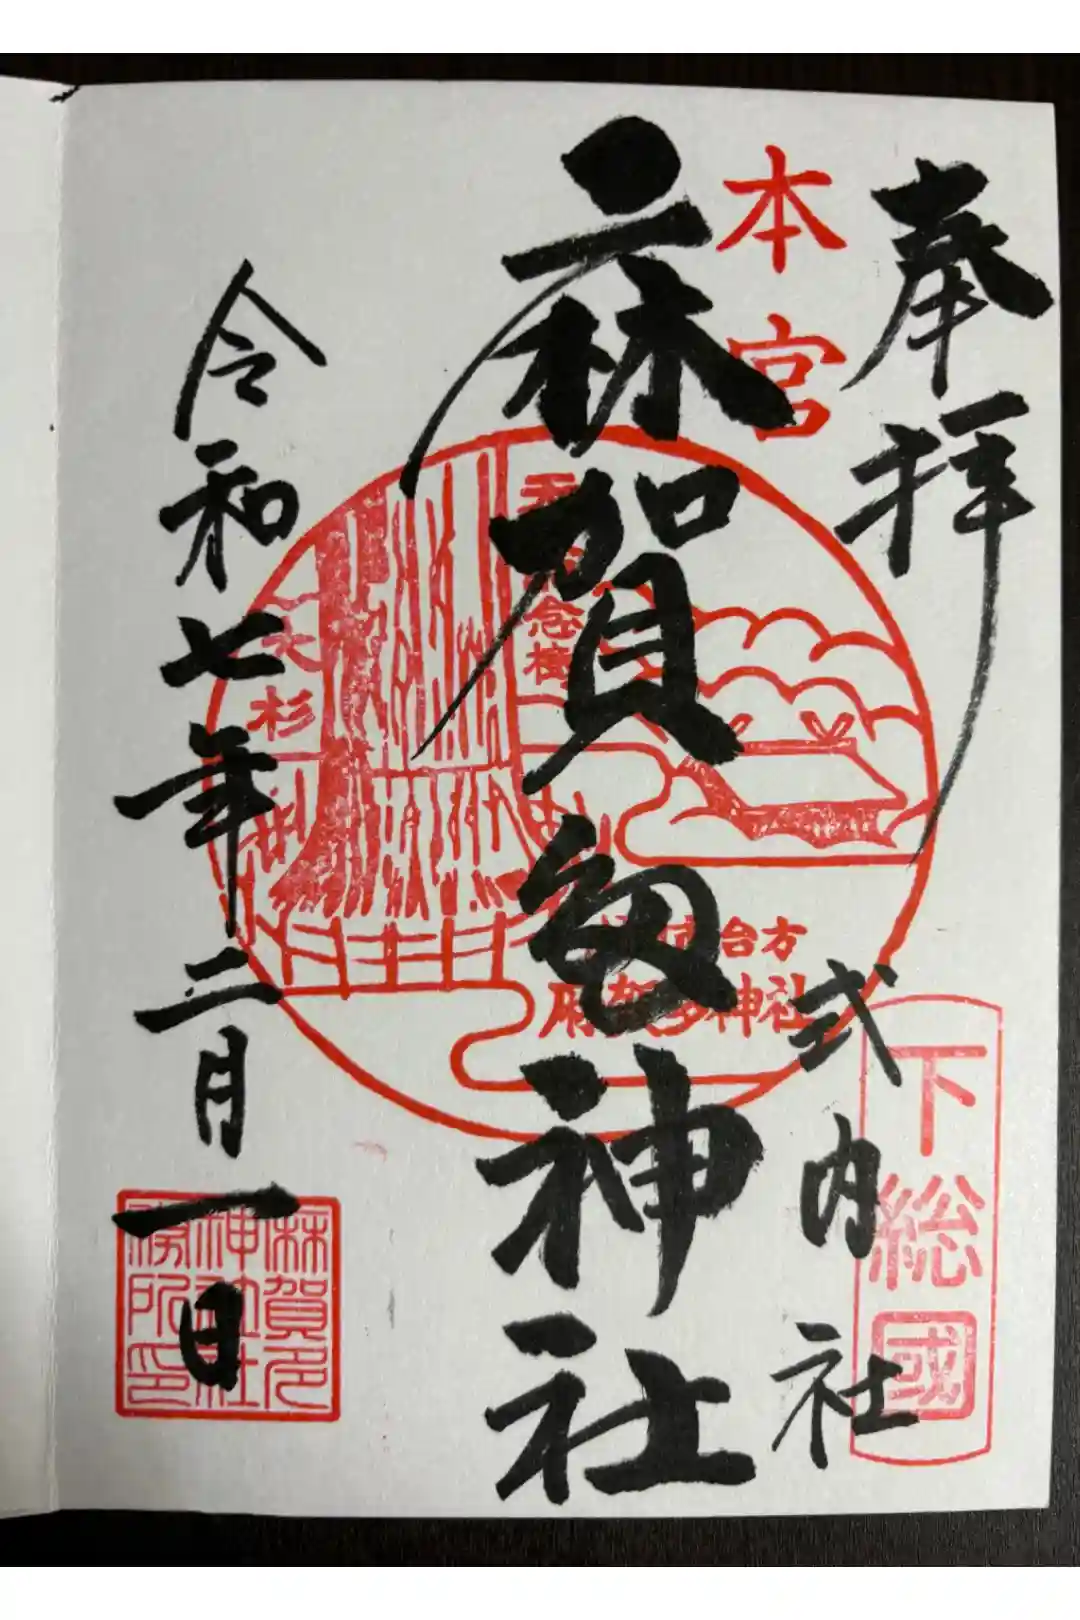 奉拝
本宮
式内社
下総國
麻賀多神社
台方
麻賀多神社
大杉
令和七年二月一日
麻賀多
神社社
務所印